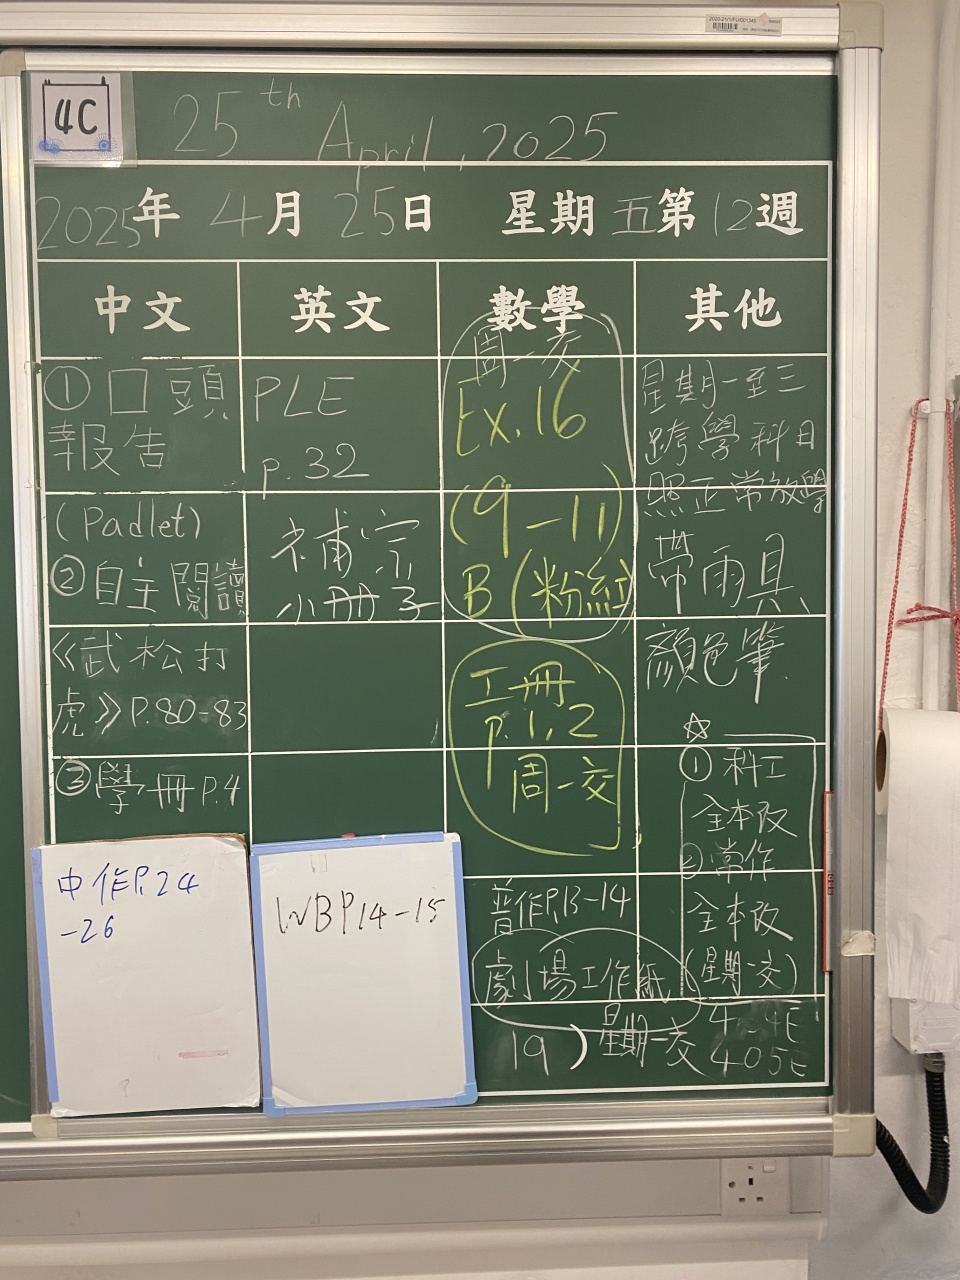 4C
25th April, 2025
2025年 4月 25日 星期五 第12週
中文
①口頭
報告
(Padlet)
②自主閱讀
《武松打
虎》P.80-83
③學冊P.4
中作P.24
-26
英文
PLE
p.32
補宗
小冊子
WBP14-15
數學
周一交
Ex.16
(9-11)
B(粉紅)
工冊
p.1,2
周一交
普作P.13-14
劇場工作紙
19) 星期一交
其他
星期一至三
跨學科日
照正常放學
帶雨具、
顏色筆
☆
①科工
全本改
②常作
全本改
(星期一交)
404E
405E